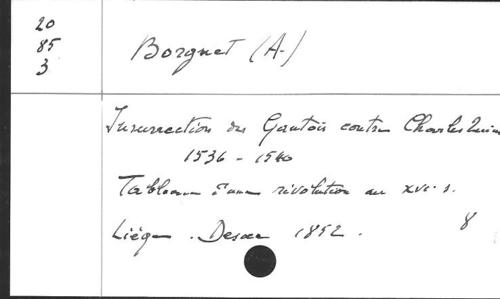 20
85
3
Borgnet (A.)
Insurrection des Gantois contre Charles Quint
1536 - 1540
Tableau d'une révolution au XVIe s.
Liége. Desoer 1852.
8